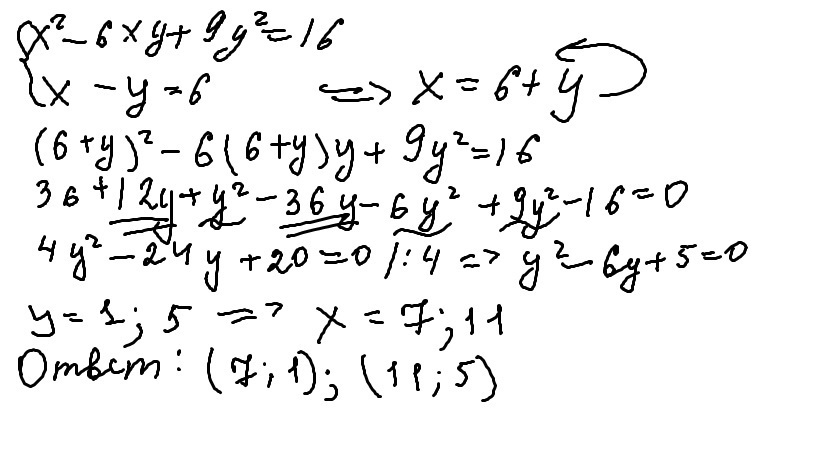 x² - 6xy + 9y² = 16
x - y = 6 => x = 6 + y
(6+y)² - 6(6+y)y + 9y² = 16
36 + 12y + y² - 36y - 6y² + 9y² - 16 = 0
4y² - 24y + 20 = 0 /:4 => y² - 6y + 5 = 0
y = 1; 5 => x = 7; 11
Ответ: (7; 1); (11; 5)